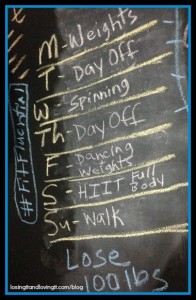 M-Weights
T-Day Off
W-Spinning
Th-Day Off
F-Dancing
Weights
S-HIIT Full
Body
Su-Walk
Lose
100 lbs
losingitandlovingit.com/blog